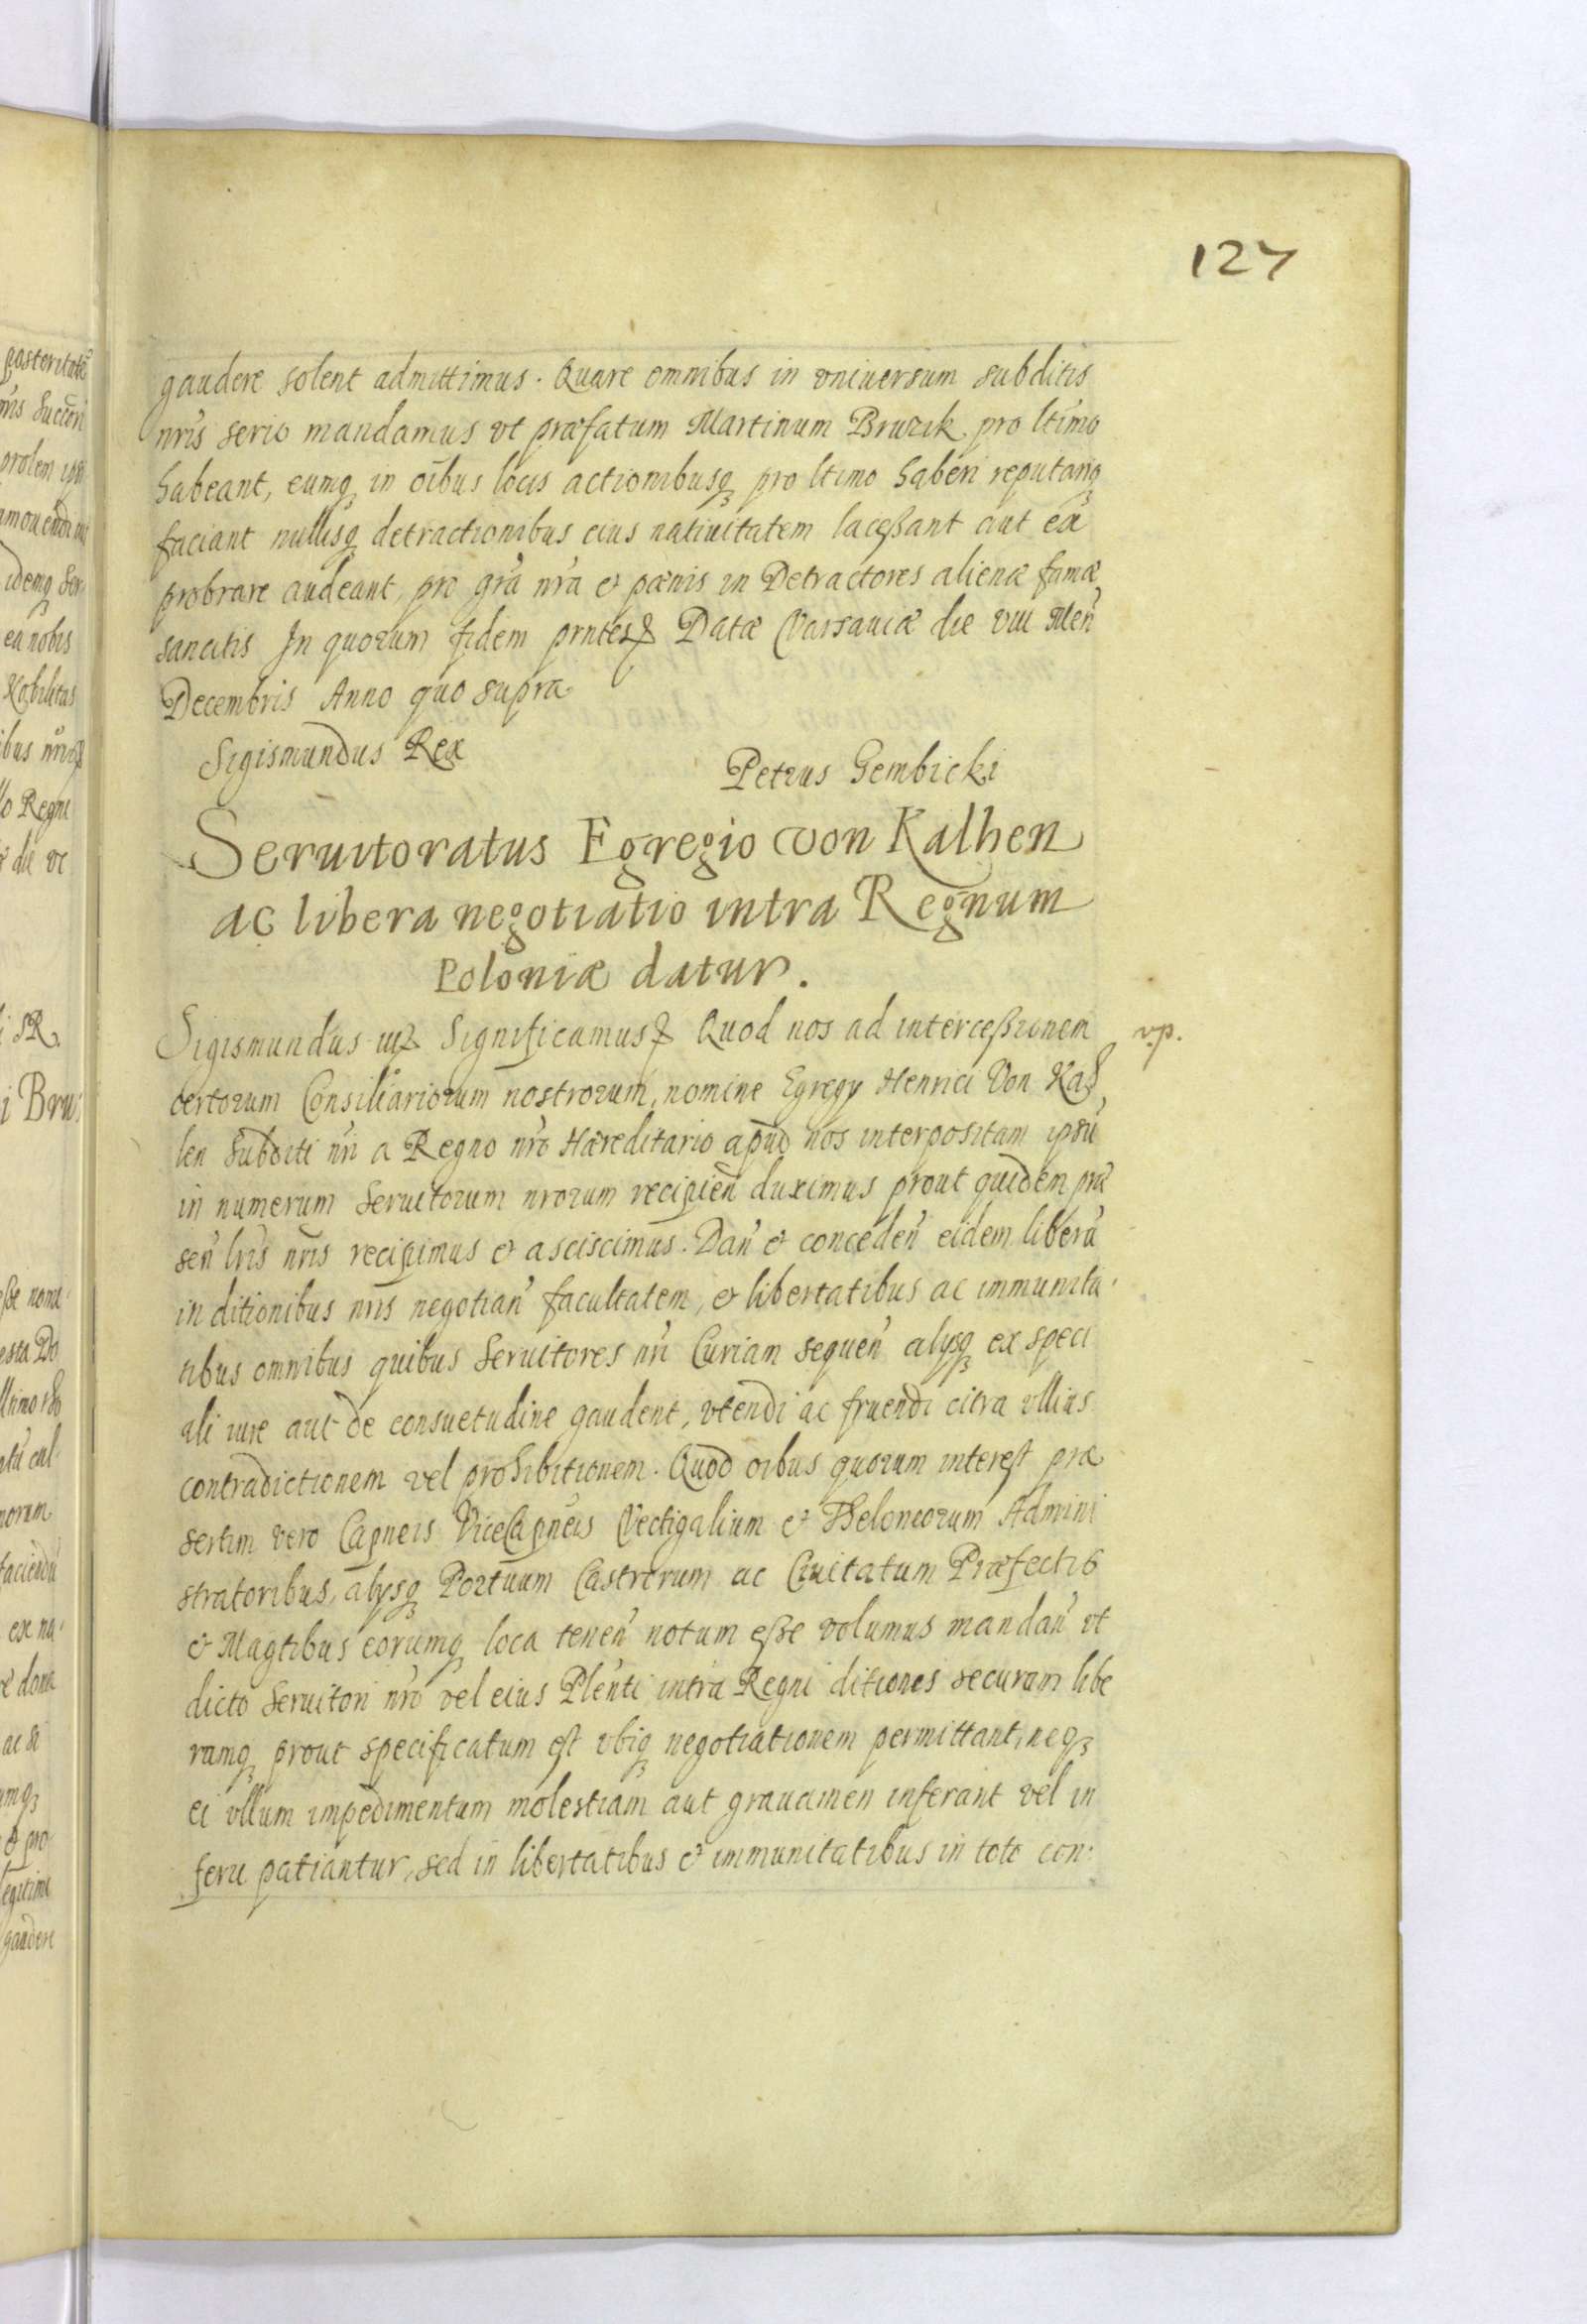 127
gaudere solent admittimus. Quare omnibus in vniuersum subditis
nris serio mandamus vt præfatum Martinum Bruzik pro ltimo
habeant, eumq₃ in oibus locis actionibusq₃ pro ltimo haberi reputariq₃
faciant nullisq₃ detractionibus eius natiuitatem laceßant aut ex
probrare audeant, pro gra nra et pœnis in Detractores alienæ famæ
sancitis In quorum fidem prntes Datæ Varsauiæ die viii Men
Decembris Anno quo supra
Sigismundus Rex
Petrus Gembicki
Seruitoratus Egregio von Kalhen
ac libera negotiatio intra Regnum
Poloniæ datur.
Sigismundus iii Significamus Quod nos ad interceßionem
v.p.
certorum Consiliariorum nostrorum, nomine Egregy Henrici Von Kal
len Subditi nri a Regno nro Hæreditario apud nos interpositam ipsũ
in numerum Seruitorum nrorum recipien duximus prout quidem præ
sen lris nris recipimus et asciscimus. Dan et conceden eidem liberã
in ditionibus nris negotian facultatem, et libertatibus ac immunita
tibus omnibus quibus Seruitores nri Curiam sequen alysq₃ ex speci
ali iure aut de consuetudine gaudent, vtendi ac fruendi citra vllius
contradictionem vel prohibitionem. Quod oibus quorum interest præ
sertim vero Capneis ViceCapneis Vectigalium et Theloneorum Admini
stratoribus, alysq₃ Portuum Castrorum ac Ciuitatum Præfectis
et Magtibus eorumq₃ loca tenen notum eße volumus mandan vt
dicto Seruitori nro vel eius Plenti intra Regni ditiones securam libe
ramq₃ prout specificatum est vbiq₃ negotiationem permittant, neq₃
ei vllum impedimentum molestiam aut grauamen inferant vel in
ferri patiantur, sed in libertatibus et immunitatibus in toto con.